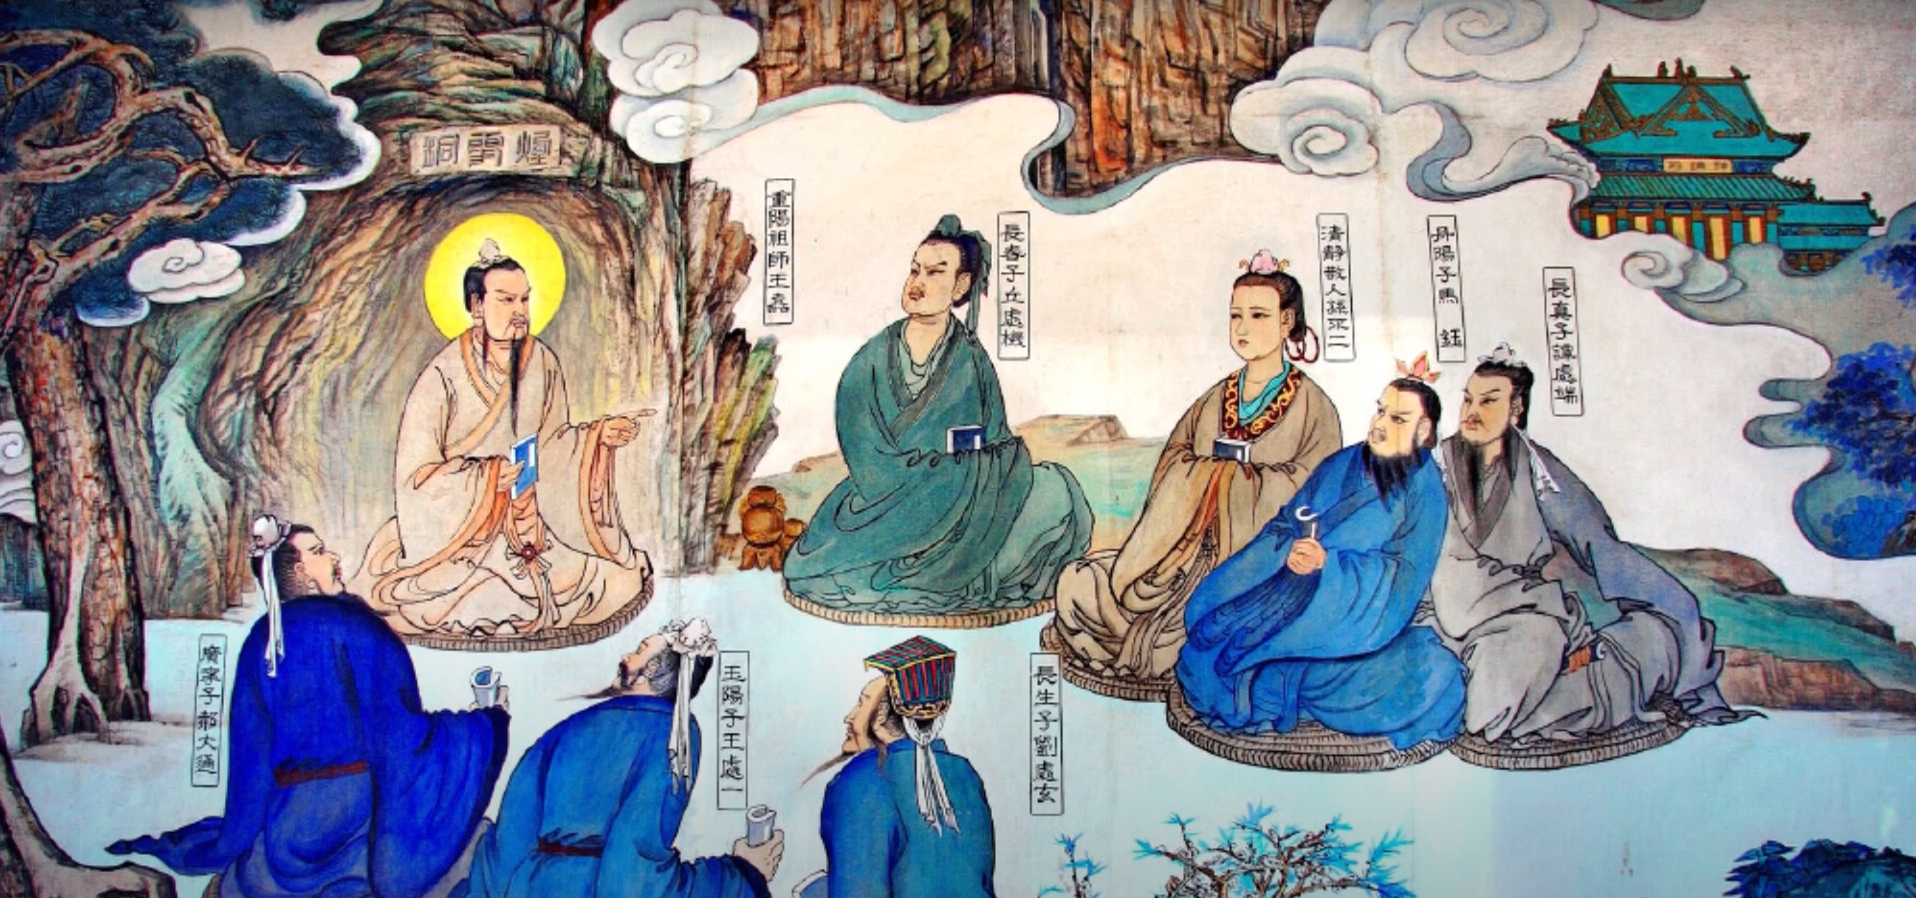 煙霞洞
重陽祖師王嚞
長春子丘處機
清靜散人孫不二
丹陽子馬 鈺
長真子譚處端
廣寧子郝大通
玉陽子王處一
長生子劉處玄